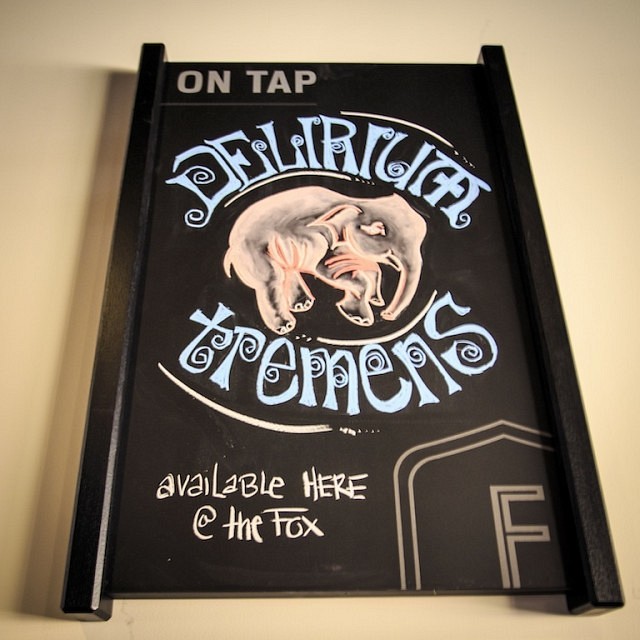 ON TAP
DELIRIUM
tremens
available HERE
@ the Fox
F